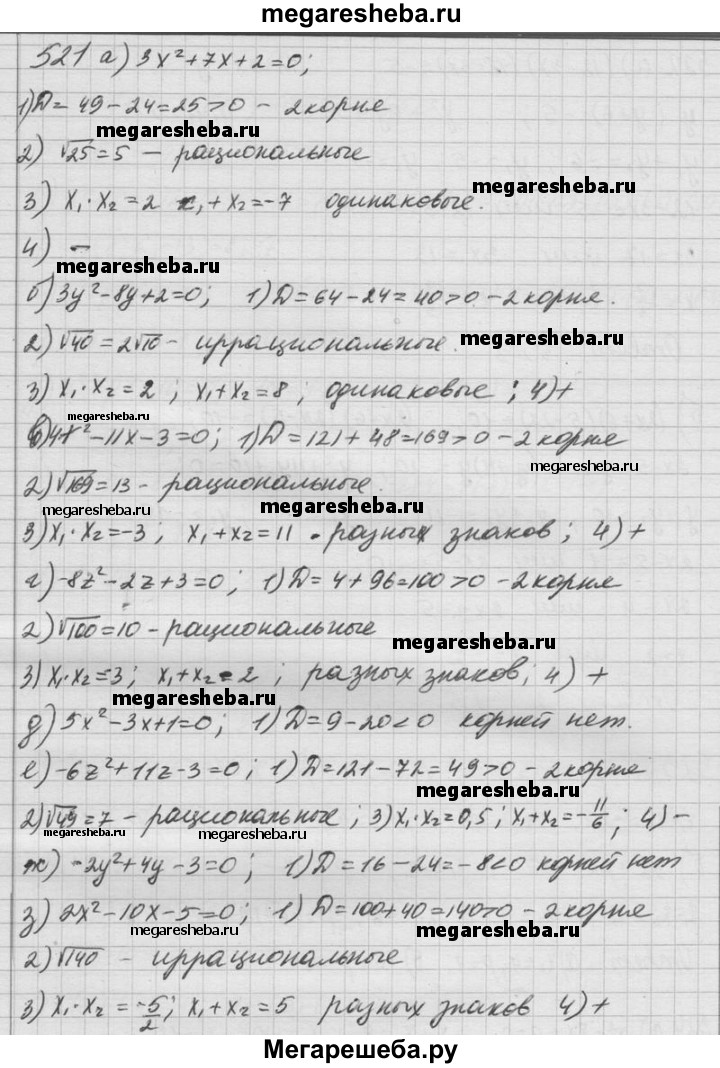 megaresheba.ru
521 а) 3x²+7x+2=0;
1) D=49-24=25>0 - 2 корня
megaresheba.ru
2) √25=5 - рациональные
megaresheba.ru
3) x₁·x₂=2 x₁+x₂=-7 одинаковые.
4) -
megaresheba.ru
б) 3y²-8y+2=0; 1) D=64-24=40>0 - 2 корня.
2) √40=2√10 - иррациональные.
megaresheba.ru
3) x₁·x₂=2; x₁+x₂=8; одинаковые; 4) +
megaresheba.ru
в) 4x²-11x-3=0; 1) D=121+48=169>0 - 2 корня
megaresheba.ru
2) √169=13 - рациональные.
megaresheba.ru
3) x₁·x₂=-3; x₁+x₂=11 - разных знаков; 4) +
г) -8z²-2z+3=0; 1) D=4+96=100>0 - 2 корня
2) √100=10 - рациональные
megaresheba.ru
3) x₁·x₂=-3; x₁+x₂=2; разных знаков; 4) +
megaresheba.ru
д) 5x²-3x+1=0; 1) D=9-20<0 корней нет.
е) -6z²+11z-3=0; 1) D=121-72=49>0 - 2 корня
2) √49=7 - рациональные; 3) x₁·x₂=0,5; x₁+x₂=-11/6; 4) -
megaresheba.ru megaresheba.ru
ж) -2y²+4y-3=0; 1) D=16-24=-8<0 корней нет
з) 2x²-10x-5=0; 1) D=100+40=140>0 - 2 корня
megaresheba.ru megaresheba.ru
2) √140 - иррациональные
3) x₁·x₂=-5/2; x₁+x₂=5 разных знаков 4) +
megaresheba.ru megaresheba.ru
Мегарешеба.ру